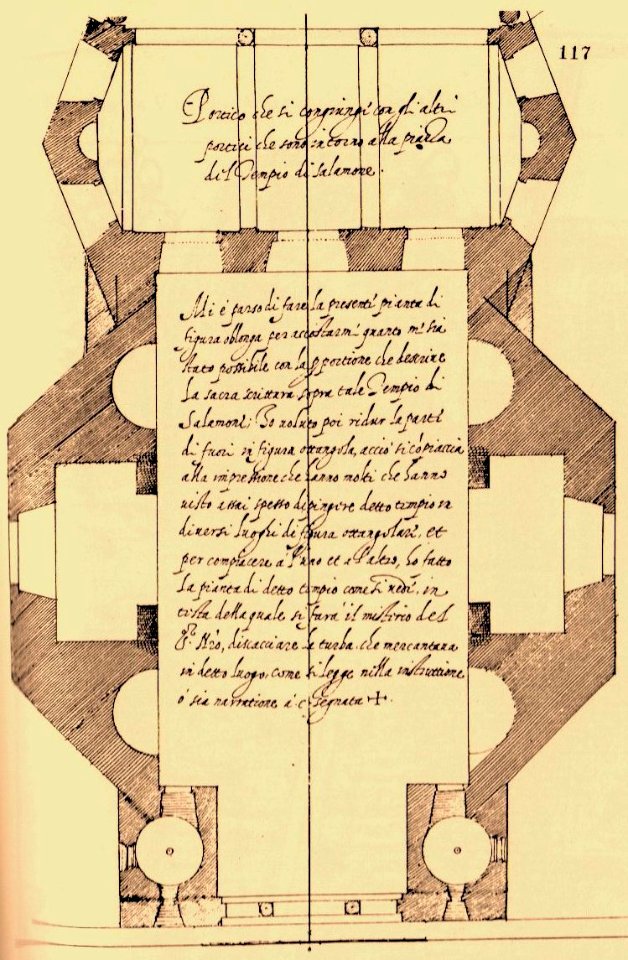 117
Portico che si congiungie con gli altri
portici che sono intorno alla piazza
del Tempio di Salamone.
Mi é parso di fare la presente pianta di
figura oblonga per accostarmi quanto mi sia
stato possibile con la pportione che descrive
la sacra scrittura sopra tale Tempio di
Salamone; Ho voluto poi ridur la parte
di fuori in figura ottangola, acciò si cōpiaccia
alla impressione che hanno molti che hanno
visto assai spesso dipingere detto tempio in
diversi luoghi di figura ottangolare, et
per compiacere a l'uno et a l'altro, ho fatto
la pianta di detto tempio come si vede, in
testa della quale si farà il misterio del
Sr. Nrō, discacciare la turba che mercantava
in detto luogo, come si legge nella instruttione
ó sia narratione á c. segnata +